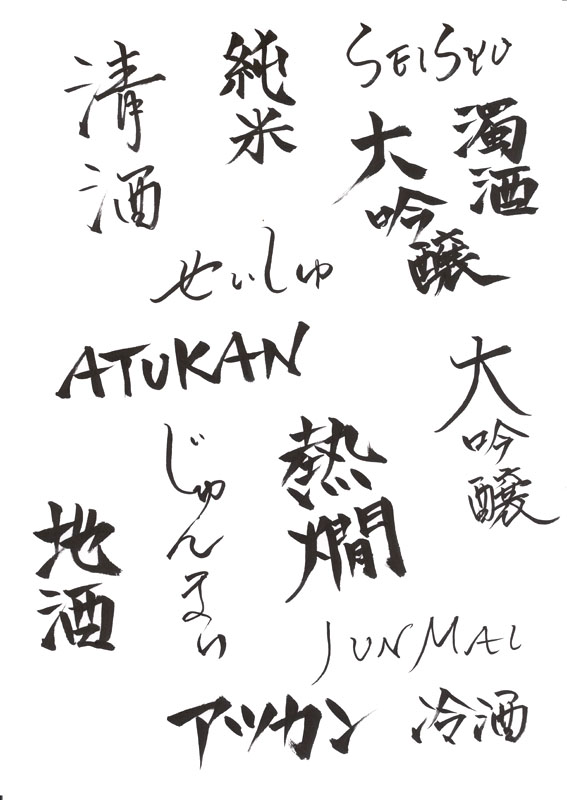 清酒
純米
SEISYU
大吟醸
濁酒
せいしゅ
ATUKAN
大吟醸
じゅんまい
熱燗
地酒
JUNMAI
アツカン
冷酒